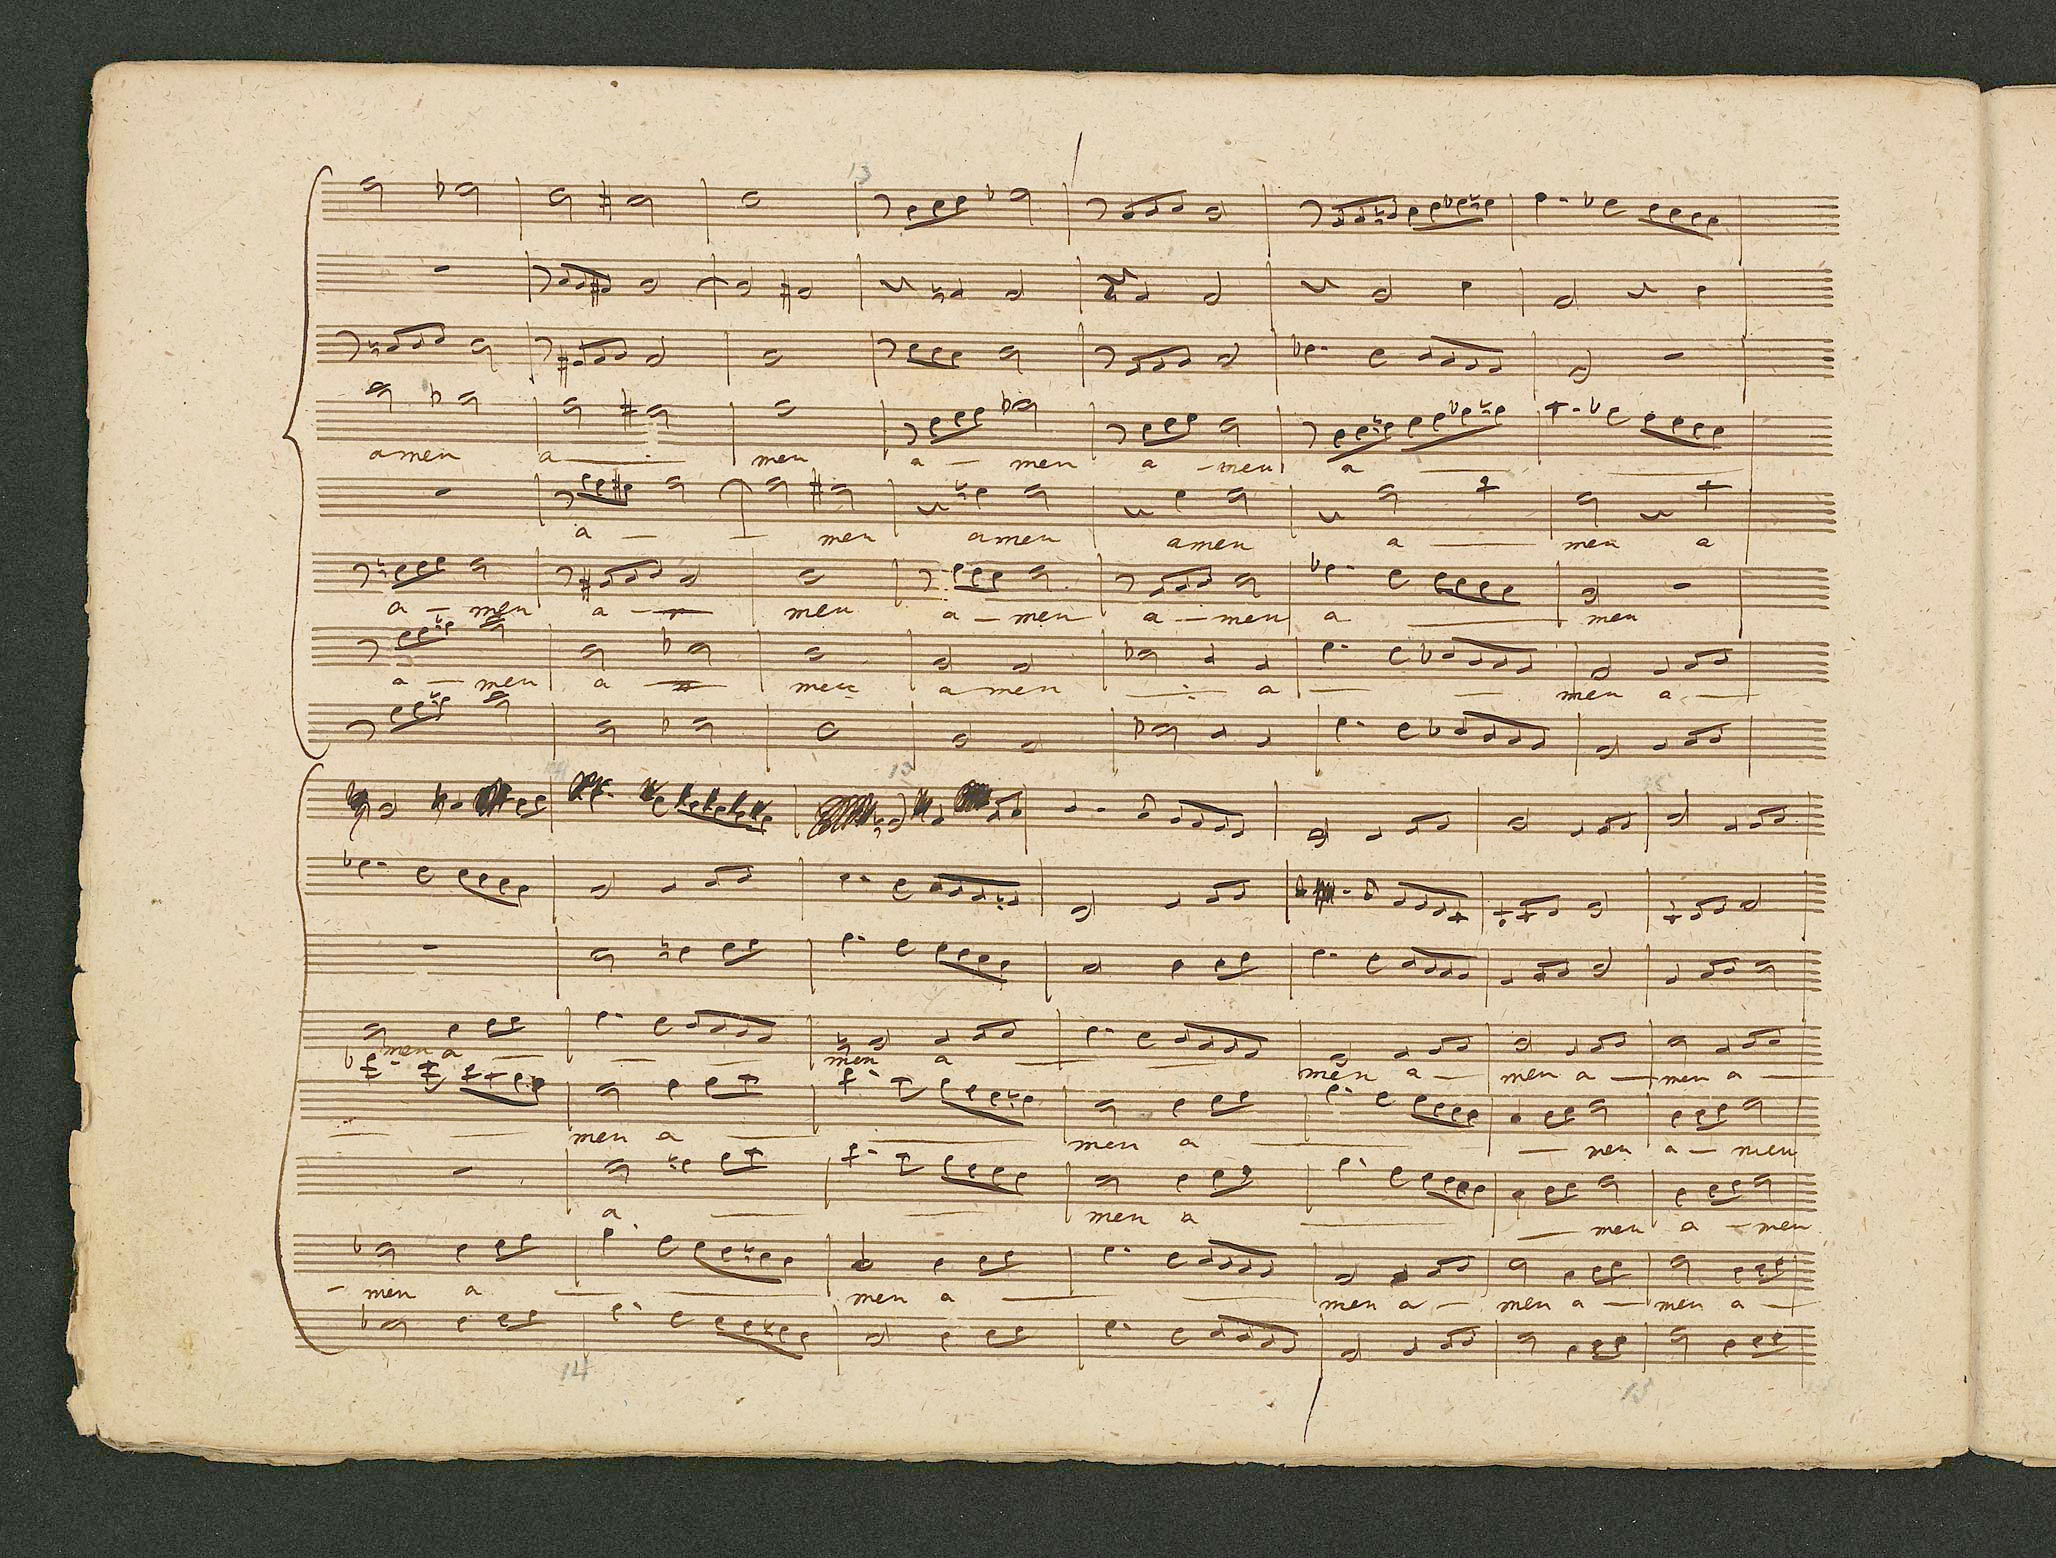 13
amen a — men a — men a — men a
a — men amen amen a — men a
a — men a — men a — men a — men a — men
a — men a — men a men — a — men a —
13
men a — men a — men a — men a — men a —
men a — men a — men a — men
a — men a — men a — men
— men a — men a — men a — men a — men a —
14 15